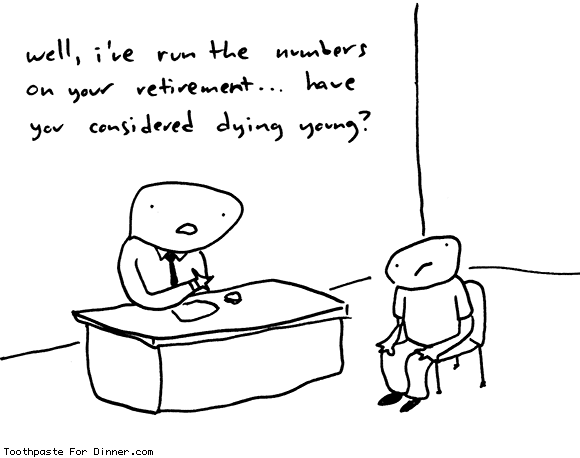 well, i've run the numbers
on your retirement... have
you considered dying young?
Toothpaste For Dinner.com